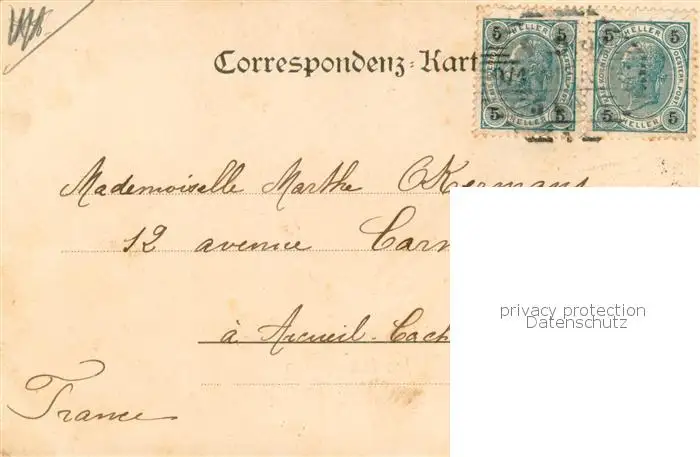 Correspondenz-Kart
5 HELLER 5
5 HELLER 5
5 HELLER 5
5 HELLER 5
Mademoiselle Marthe
12 avenue Carn
à Arcueil-Cach
France
privacy protection
Datenschutz